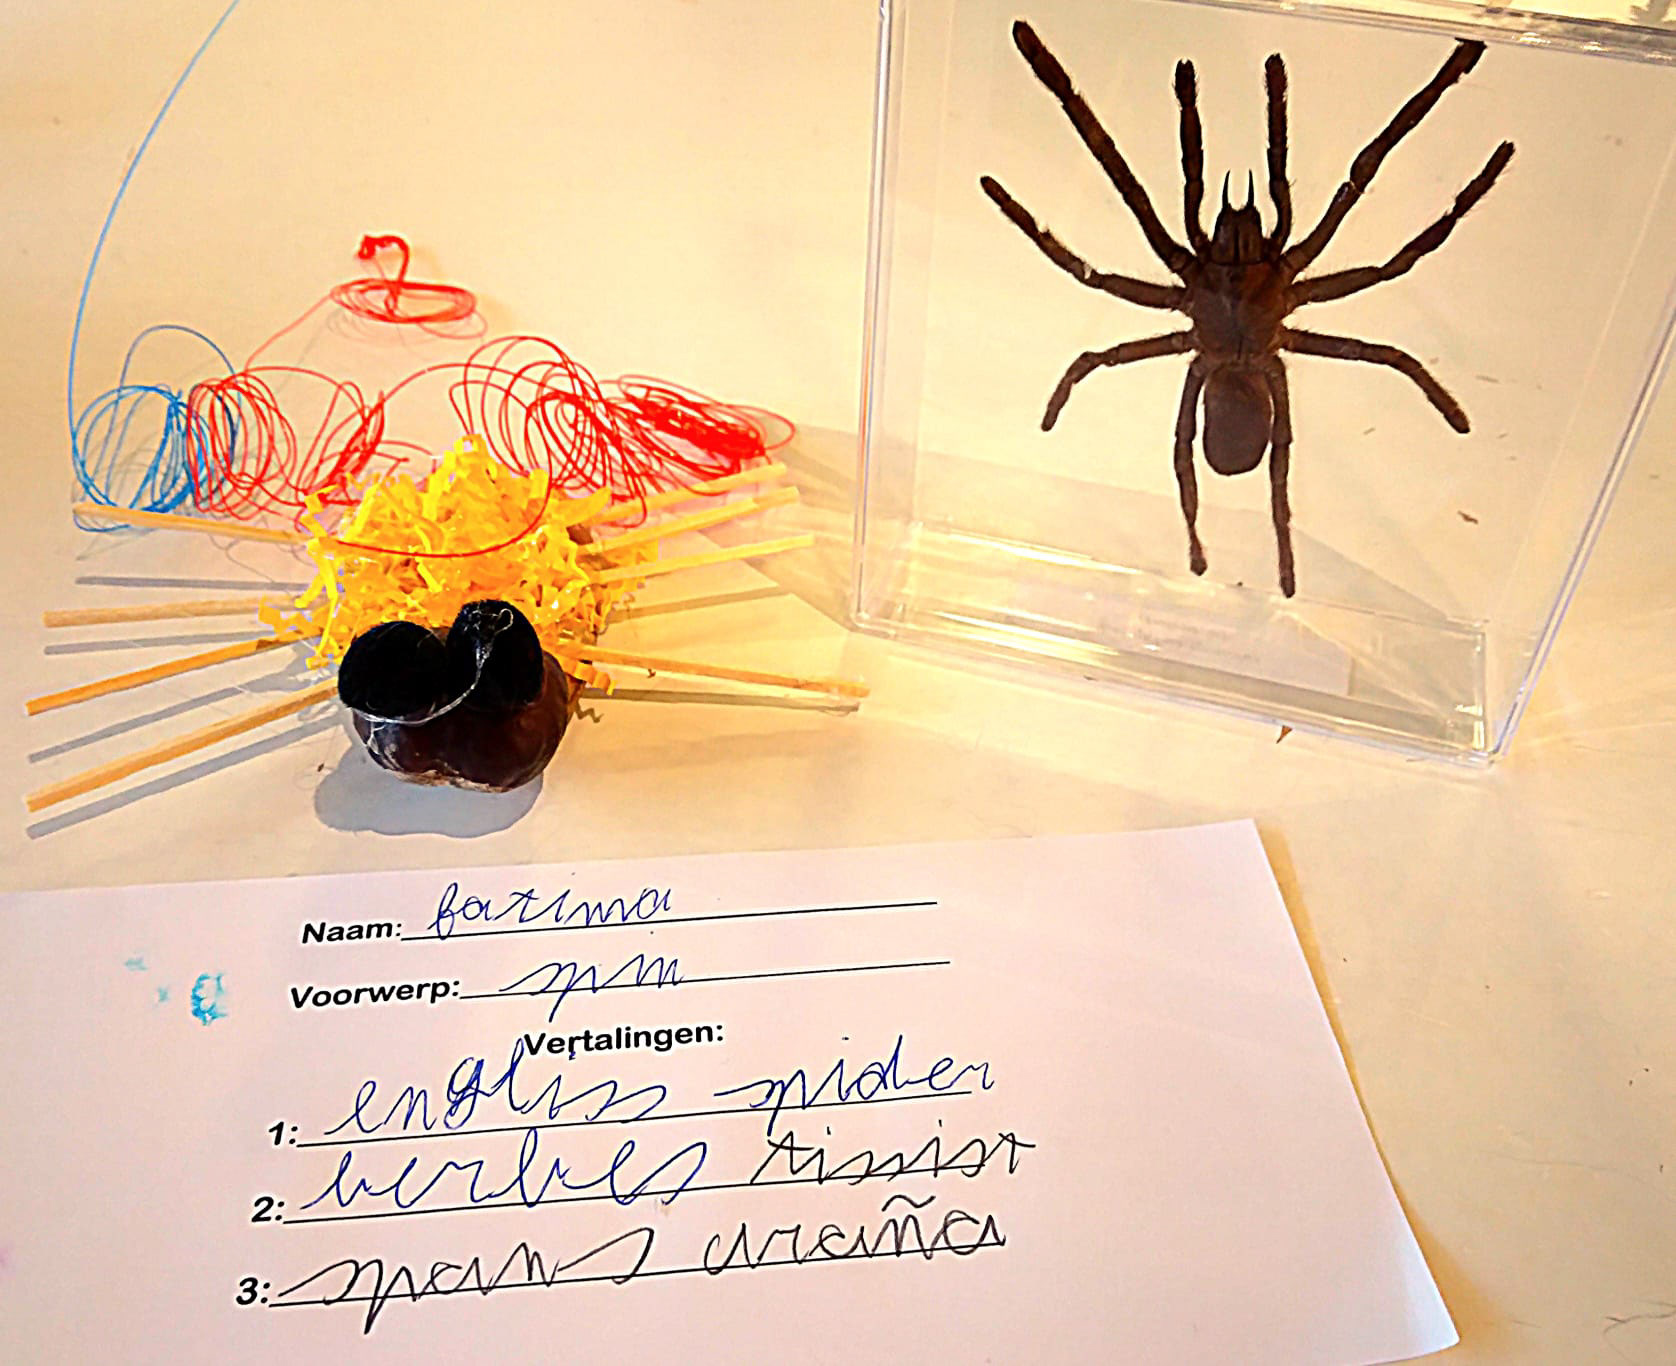 Naam: fatima
Voorwerp: spin
Vertalingen:
1: engliss spider
2: berbes tissist
3: spans araña